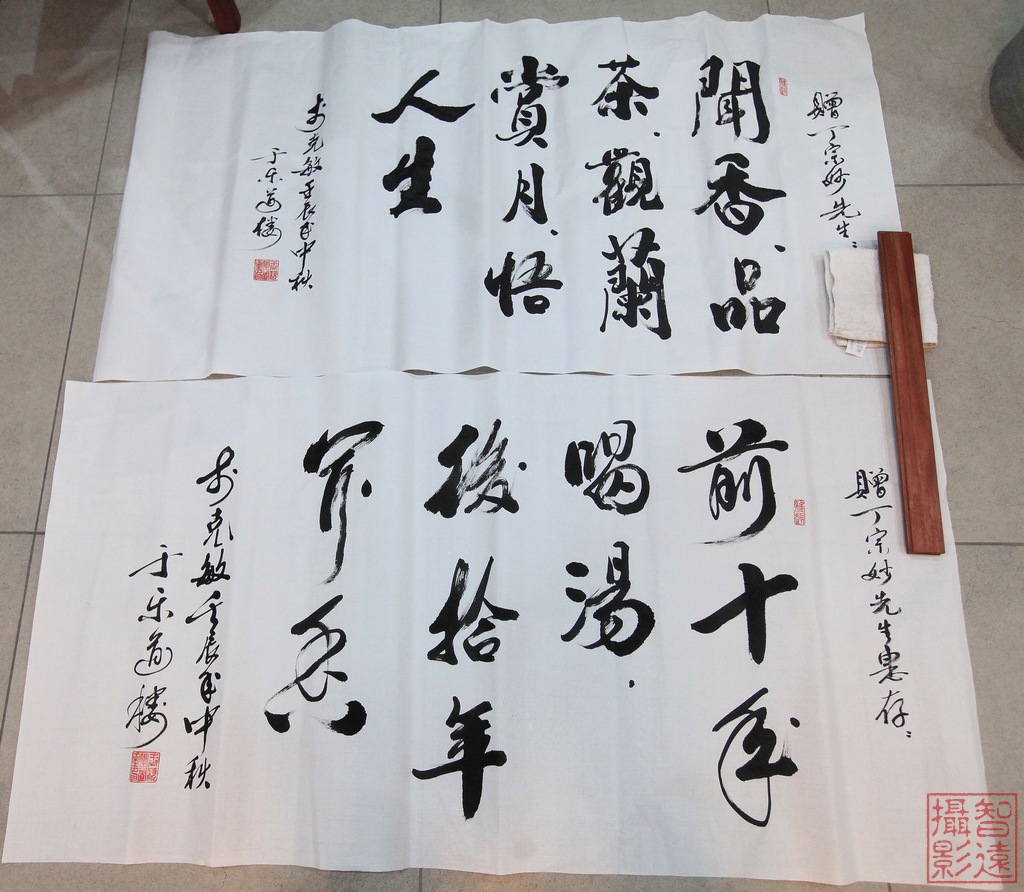 贈丁宗妙先生：
聞香、品
茶、觀蘭
賞月、悟
人生
克敏壬辰年中秋
于乐道楼
贈丁宗妙先生惠存：
前十年
喝湯.
後拾年
聞香
克敏壬辰年中秋
于乐道楼
智遠
攝影